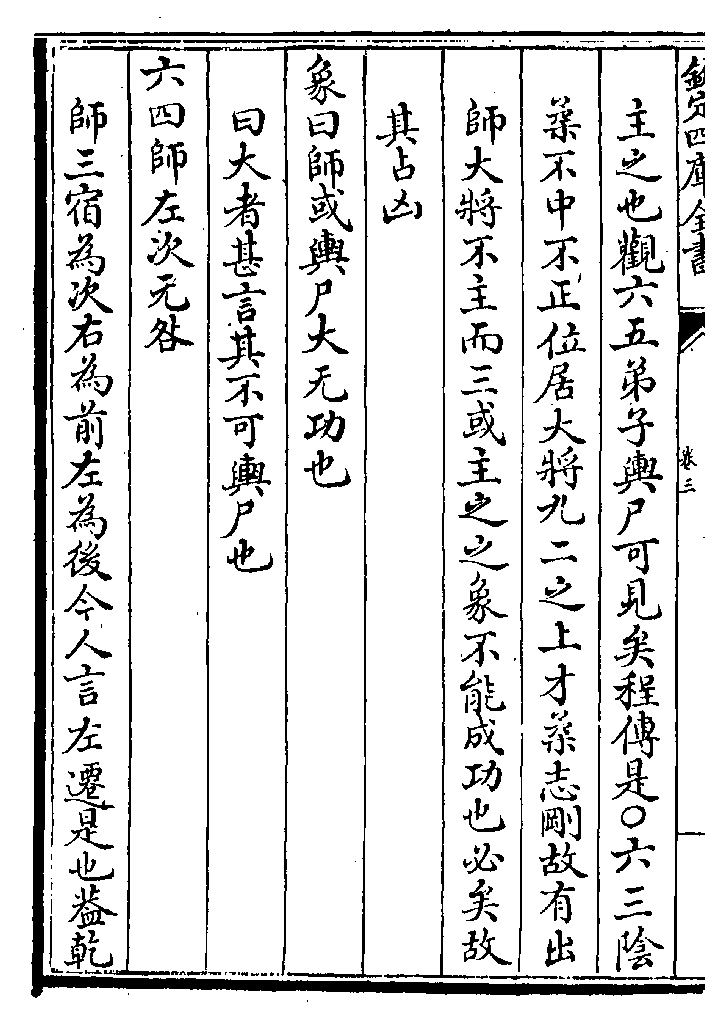 欽定四庫全書
卷三
主之也觀六五弟子輿尸可見矣程傳是○六三陰
柔不中不正位居大將九二之上才柔志剛故有出
師大將不主而三或主之之象不能成功也必矣故
其占凶
象曰師或輿尸大无功也
曰大者甚言其不可輿尸也
六四師左次无咎
師三宿為次右為前左為後今人言左遷是也蓋乾